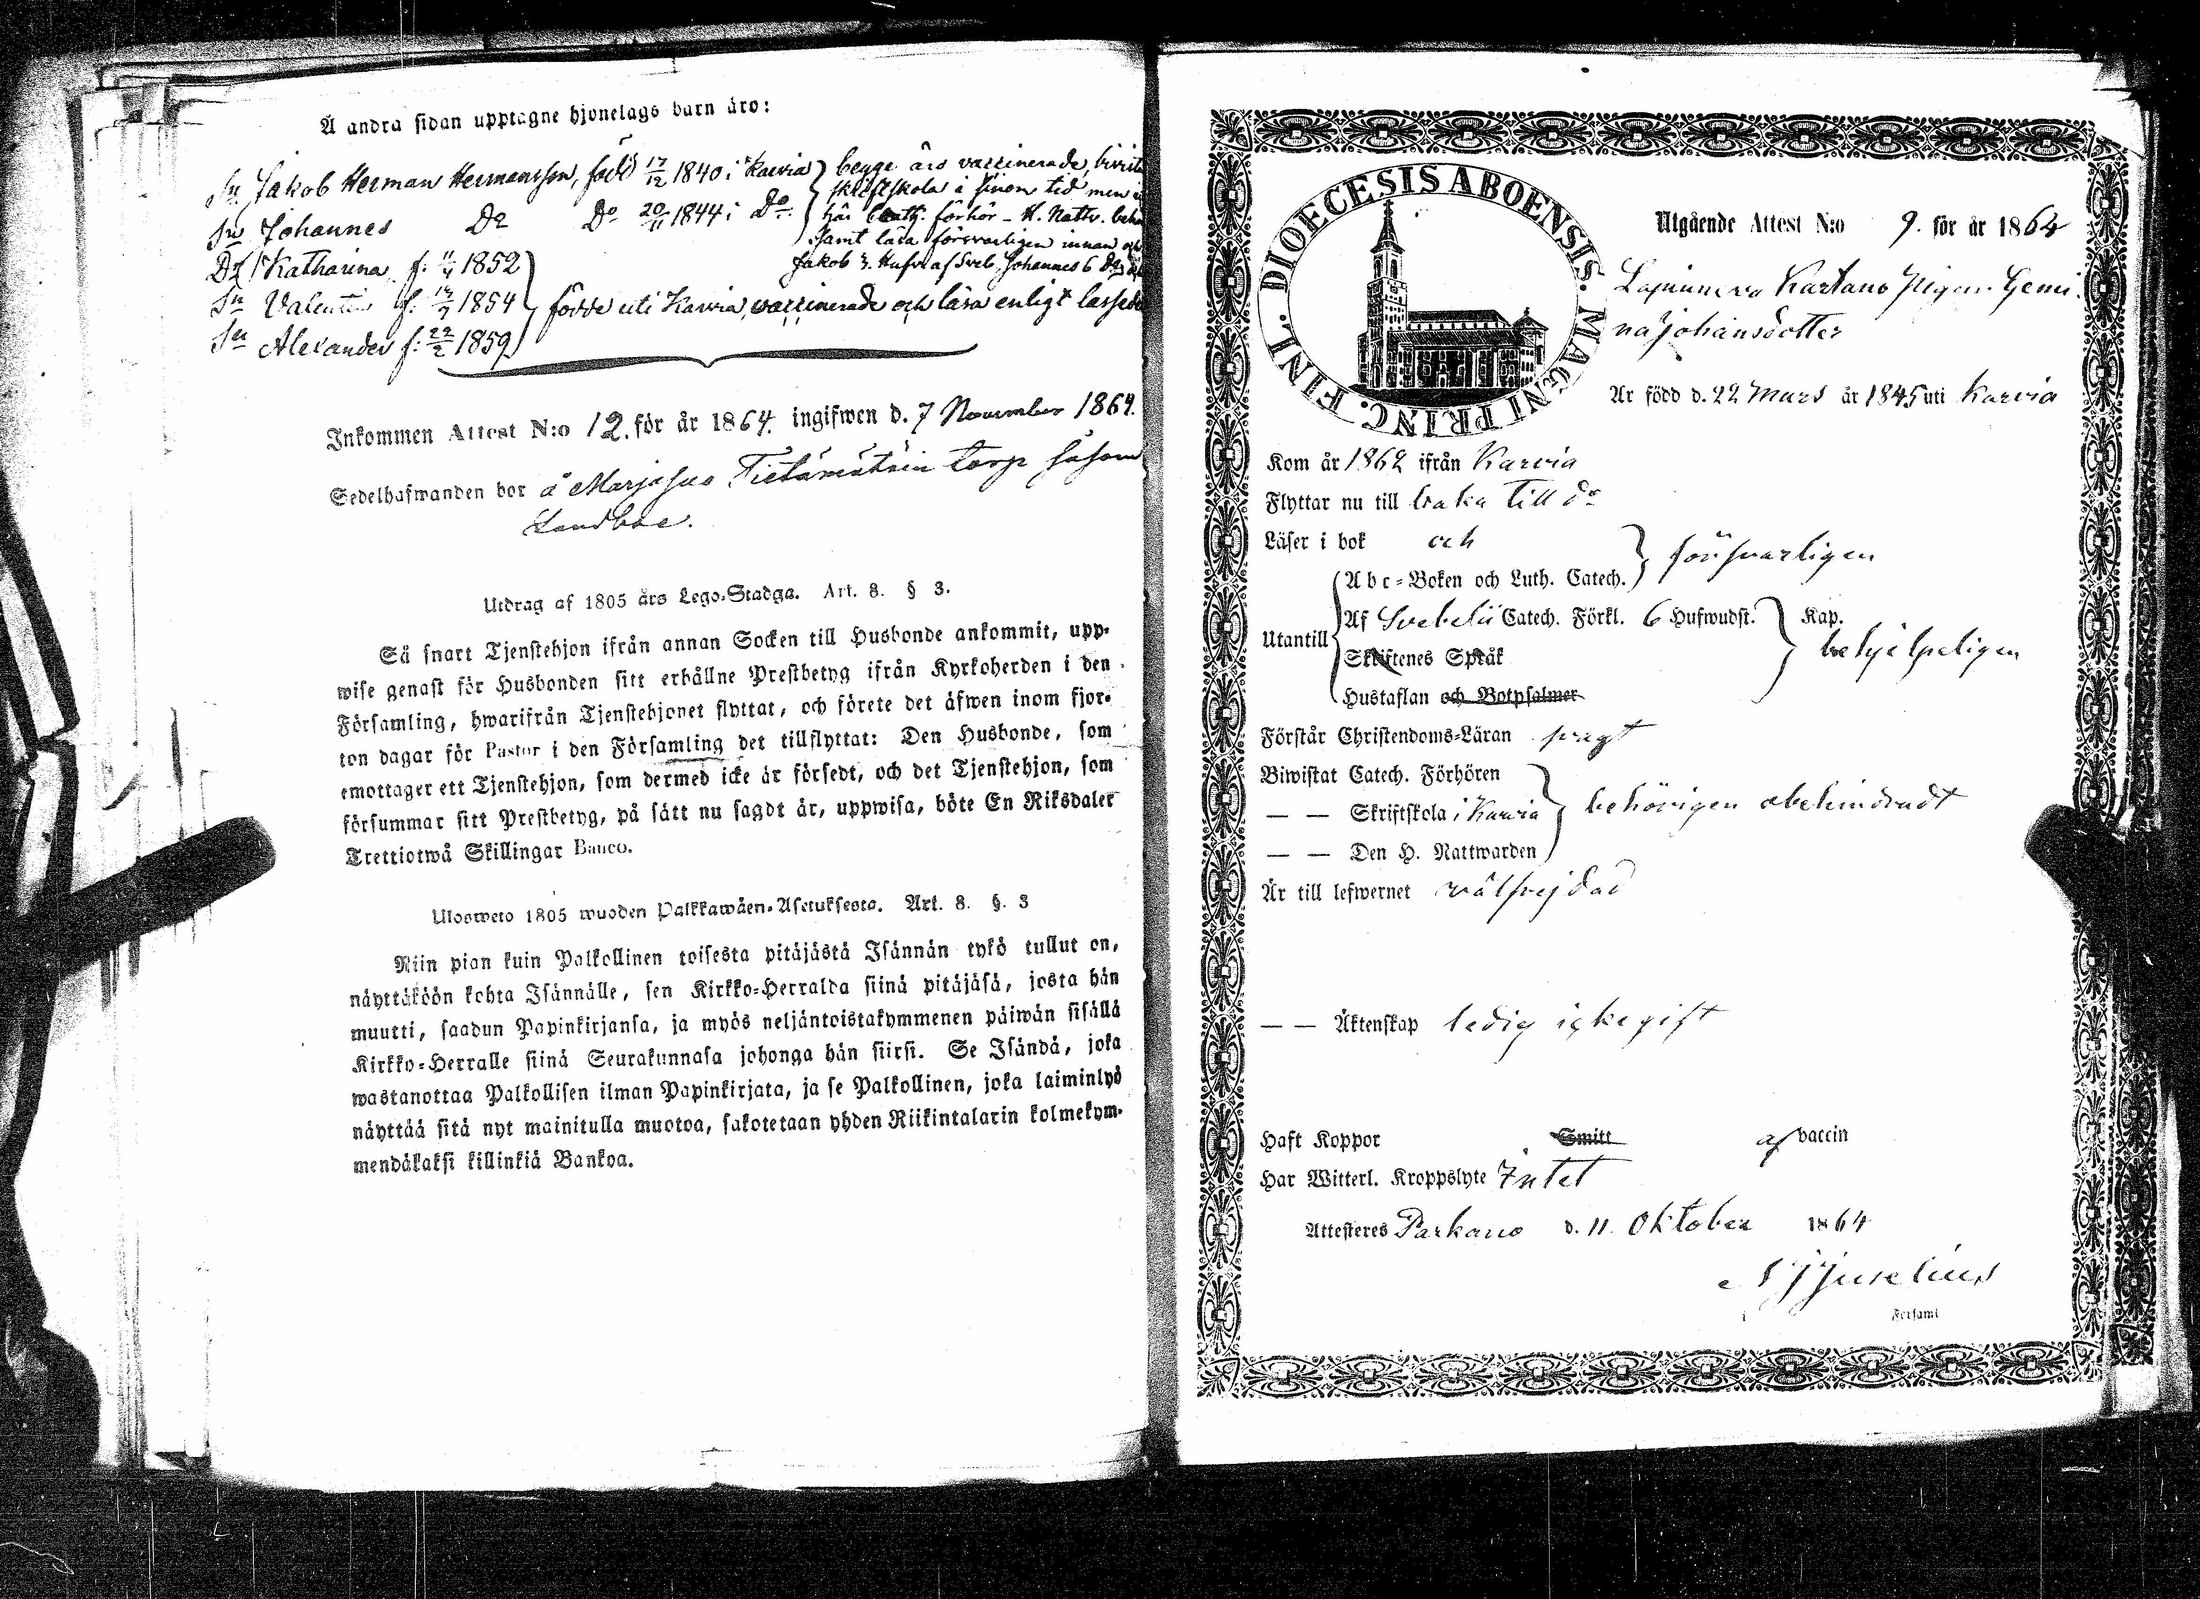 Å andra sidan upptagne hjonelags barn äro:
Sn Jakob Herman Hermansson, född 17/12 1840 i Karvia } begge äro vaccinerade, bivist
skriftskola i sinom tid men
Sn Johannes Do Do 20/11 1844 i Do. här förhör - H. Nattv.
samt läsa försvarligen innan och
Jakob 3. Hufvst. af Sveb. Johannes 6
Dr Katharina f. 11/4 1852
Sn Valentin f. 1854 } födde uti Karvia, vaccinerade och lära enligt
Sn Alexander f: 22/2 1859
Inkommen Attest N:o 12. för år 1864. ingifwen d. 7 November 1864.
Sedelhafwanden bor å Marjasuo torp såsom
Landbo.
Utdrag af 1805 års Lego-Stadga. Art. 8. § 3.
Så snart Tjenstehjon ifrån annan Socken till Husbonde ankommit, upp-
wise genast för Husbonden sitt erhållne Prestbetyg ifrån Kyrkoherden i den
Församling, hwarifrån Tjenstehjonet flyttat, och förete det äfwen inom fjor-
ton dagar för Pastor i den Församling det tillflyttat: Den Husbonde, som
emottager ett Tjenstehjon, som dermed icke är försedt, och det Tjenstehjon, som
försummar sitt Prestbetyg, på sätt nu sagdt är, uppwisa, böte En Riksdaler
Trettiotwå Skillingar Banco.
Ulosweto 1805 wuoden Palkkawäen-Asetuksesta. Art. 8. §. 3
Niin pian kuin Palkollinen toisesta pitäjästä Isännän tykö tullut on,
näyttäköön kohta Isännälle, sen Kirkko-Herralda siinä pitäjäsä, josta hän
muutti, saadun Papinkirjansa, ja myös neljäntoistakymmenen päiwän sisällä
Kirkko-Herralle siinä Seurakunnasa johonga hän siirsi. Se Isändä, joka
wastanottaa Palkollisen ilman Papinkirjata, ja se Palkollinen, joka laiminlyö
näyttää sitä nyt mainitulla muotoa, sakotetaan yhden Riikintalarin kolmekym-
mendäkaksi killinkiä Bankoa.
DIOECESIS ABOENSIS. MAGNI PRINC. FINL.
Utgående Attest N:o 9. för år 1864
Kartano Pigan Gemi-
na Johansdotter
Är född d. 22 Mars år 1845 uti Karvia
Kom år 1862 ifrån Karvia
Flyttar nu till baka till do
Läser i bok och
Abc-Boken och Luth. Catech. } försvarligen
Utantill
Af Svebelii Catech. Förkl. 6 Hufwudst. Kap.
Skriftenes Språk
behjelpeligen
Hustaflan och Botpsalmer
Förstår Christendoms-Läran svagt
Biwistat Catech. Förhören
— — Skriftskola i Karvia } behörigen obehindradt
— — Den H. Nattwarden
Är till lefwernet välfrejdad
— — Äktenskap ledig icke gift
Haft Koppor Smitt af vaccin
Har Witterl. Kroppslyte Intet
Attesteres Parkano d. 11. Oktober 1864
Juselius
Församl